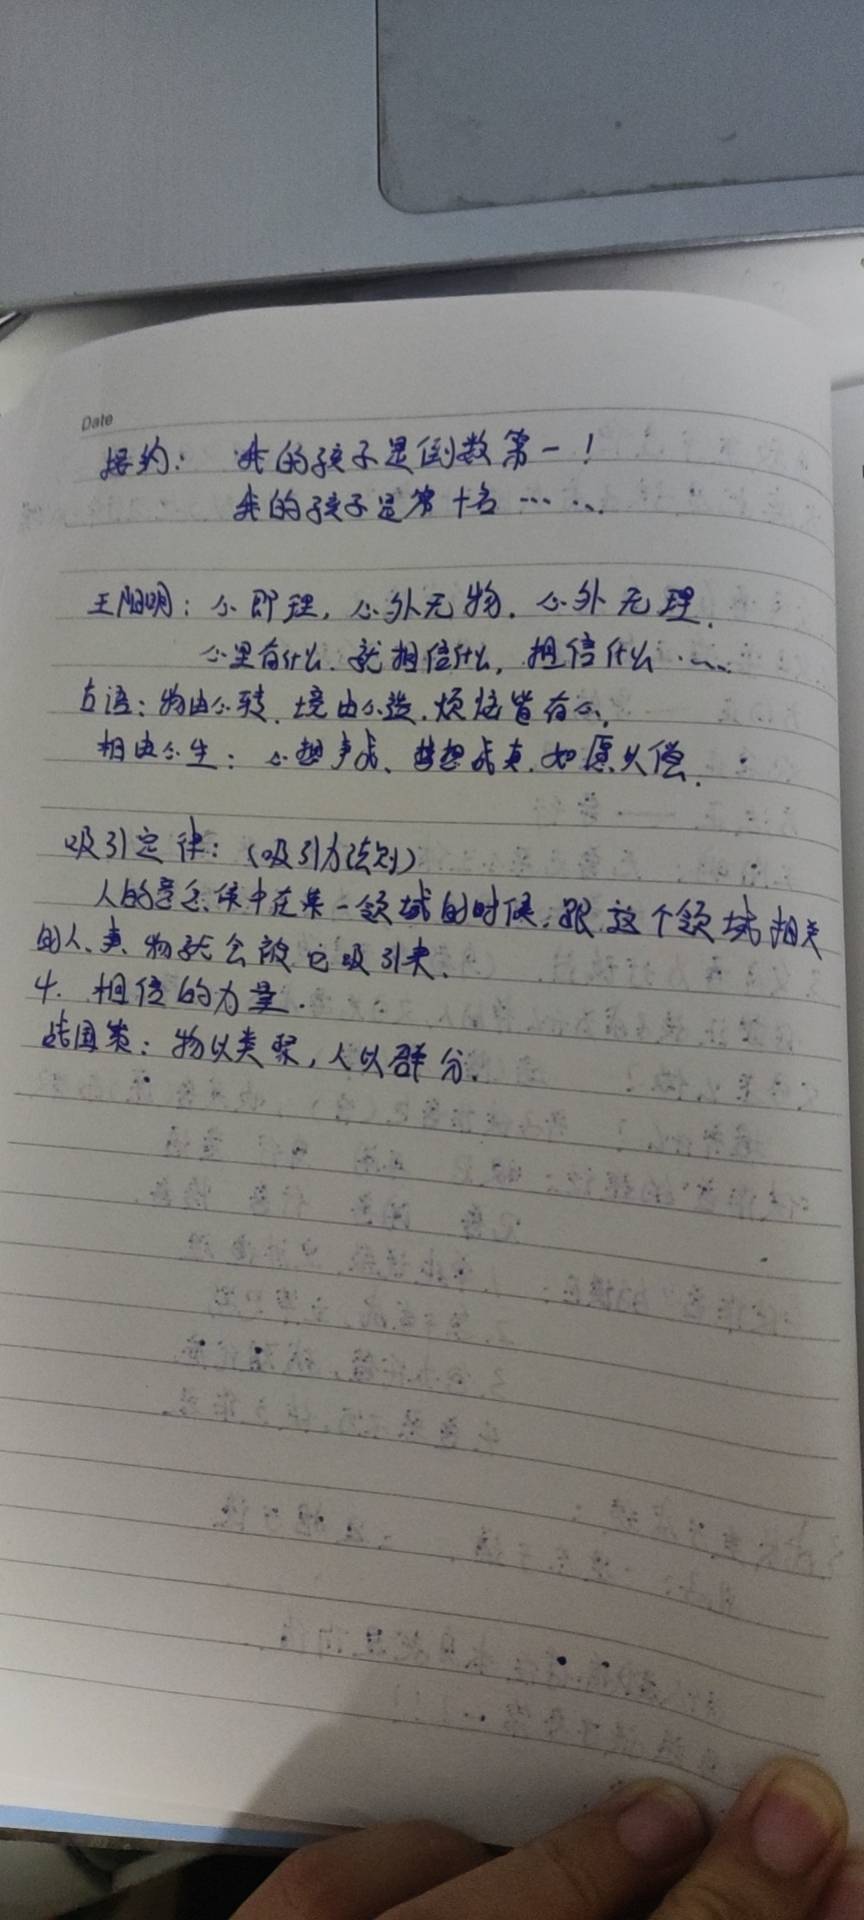 Date
接约：我的孩子是倒数第一！
我的孩子是第十名……
王阳明：心即理，心外无物．心外无理．
心里有什么．就相信什么，相信什么……
古语：物由心转．境由心造．烦恼皆有心，
相由心生：心想事成、梦想成真．如愿以偿．
吸引定律：（吸引力法则）
人的意念集中在某一领域的时候．跟这个领域相关
的人、事、物就会被它吸引来．
4．相信的力量．
战国策：物以类聚，人以群分．